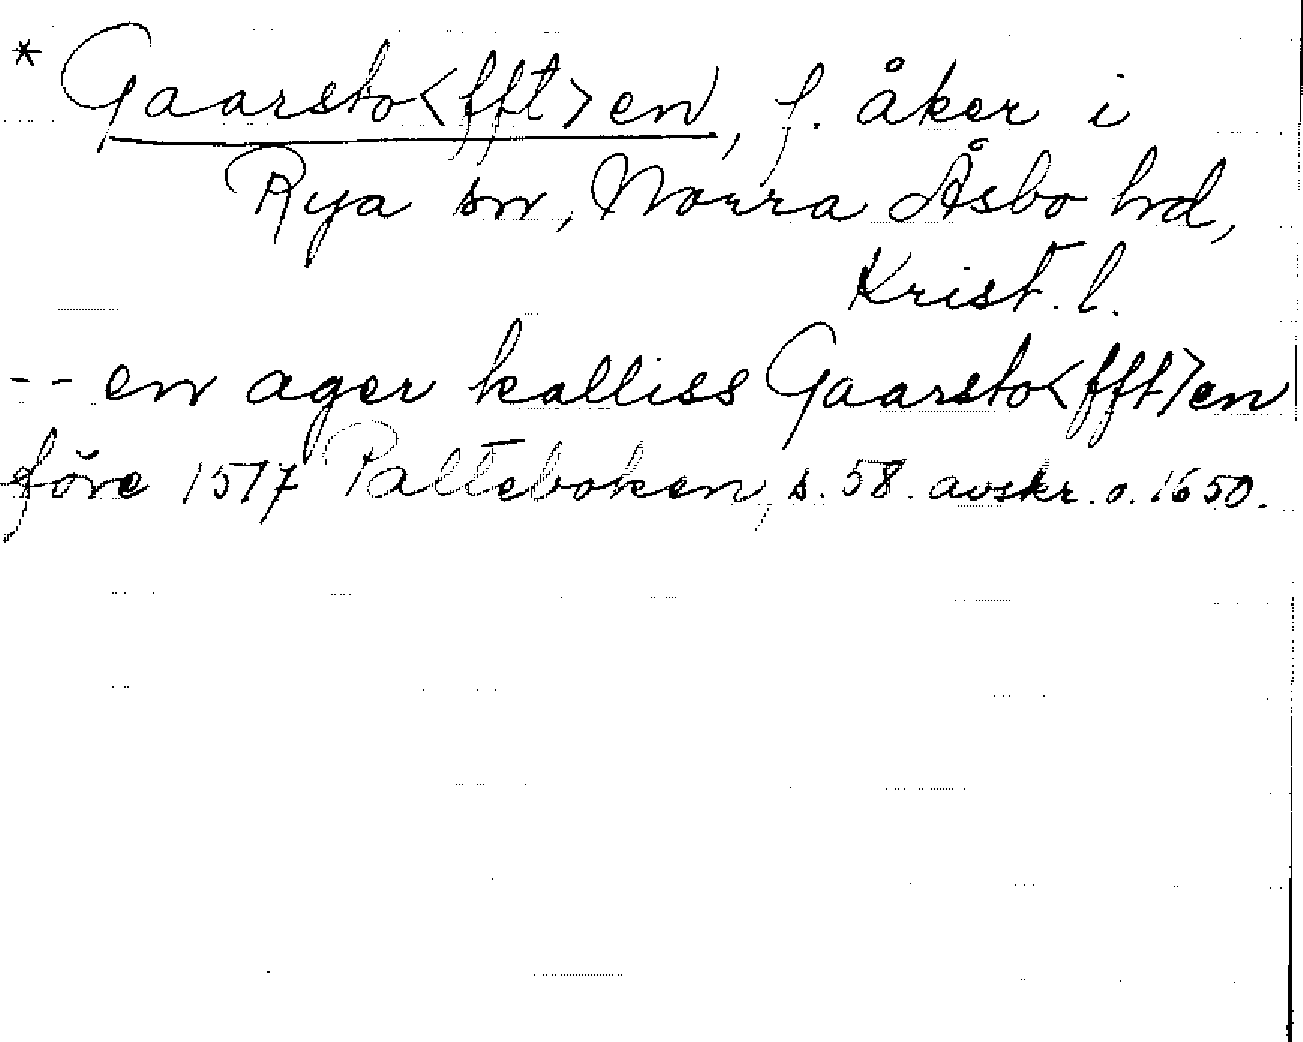 * Gaarsto<fft>en, f. åker i
Rya sn, Norra Åsbo hd,
Krist. l.
-- en ager kalliss Gaarsto<fft>en
före 1517 Palteboken, s. 58. avskr. o. 1650.